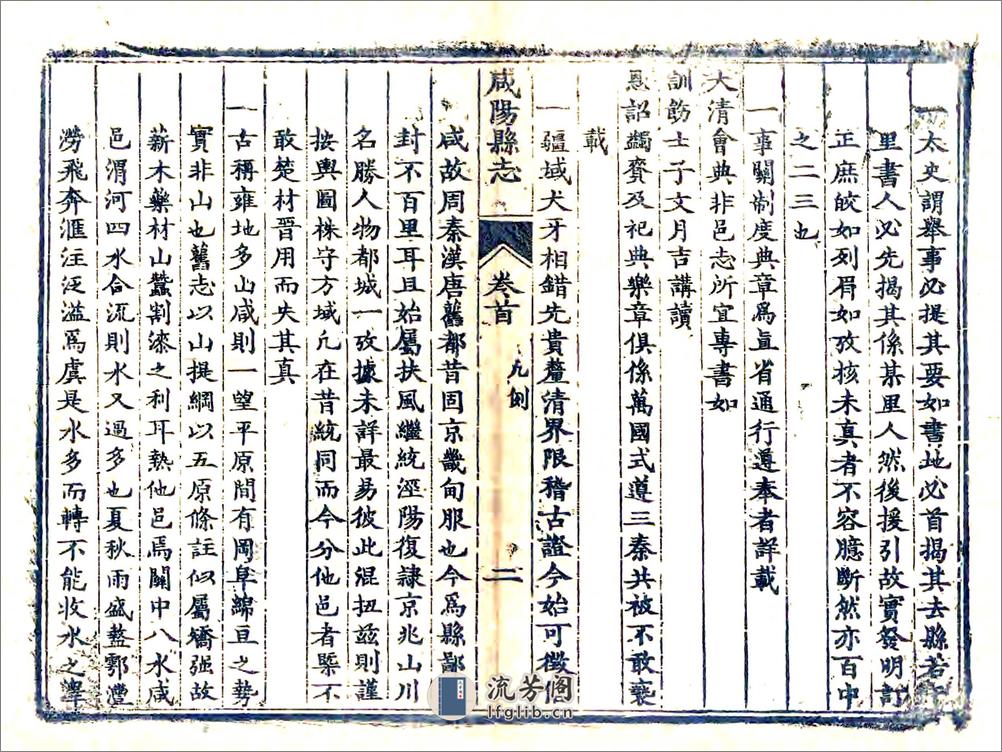 一太史謂舉事必提其要如書地必首揭其去縣若干
里書人必先揭其係某里人然後援引故實發明訂
正庶皎如列眉如攷核未真者不容臆斷然亦百中
之二三也
一事關制度典章爲直省通行遵奉者詳載
大清會典非邑志所宜專書如
訓飭士子文月吉講讀
恩詔蠲賚及祀典樂章俱係萬國式遵三秦共被不敢褻
載
一疆域犬牙相錯先貴釐清界限稽古證今始可徵信
咸陽縣志 卷首 凡例 二
咸故周秦漢唐舊都昔固京畿甸服也今爲縣鄙
封不百里耳且始屬扶風繼統涇陽復隷京兆山川
名勝人物都城一攷據未詳最易彼此混扭茲則謹
按輿圖株守方域凢在昔統同而今分他邑者槩不
敢楚材晉用而失其真
一古稱雍地多山咸則一望平原間有岡阜綿亘之勢
實非山也舊志以山提綱以五原條註似屬矯强故
薪木藥材山蠶割漆之利耳熱他邑焉關中八水咸
邑渭河四水合流則水又過多也夏秋雨盛盩鄠灃
澇飛奔滙注泛溢爲虞是水多而轉不能收水之
流芳阁
lfglib.cn